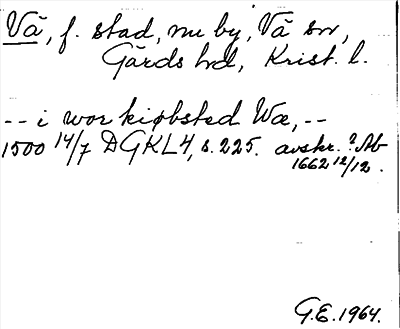 Vä, f. stad, nu by, Vä sn,
Gärds hd, Krist. l.
-- i wor kiøbsted Wæ, --
1500 14/7 DGKL 4, s. 225. avskr. ? Ab
1662 12/12.
G.E. 1964.